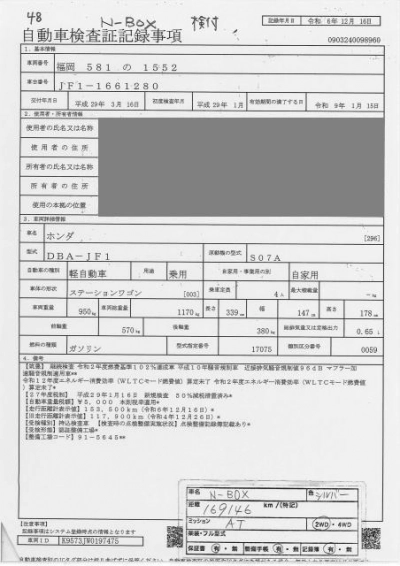 48 N-BOX 検付
記録年月日 令和 6年12月16日
自動車検査証記録事項
0903240098960
1. 基本情報
車両番号 福岡 581 の 1552
車台番号 JF1-1661280
交付年月日 平成29年 3月16日 初度検査年月 平成29年 1月 有効期間の満了する日 令和 9年 1月15日
2. 使用者・所有者情報
使用者の氏名又は名称
使用者の住所
所有者の氏名又は名称
所有者の住所
使用の本拠の位置
3. 車両詳細情報
車名 ホンダ [296]
型式 DBA-JF1 原動機の型式 S07A
自動車の種別 軽自動車 用途 乗用 自家用・事業用の別 自家用
車体の形状 ステーションワゴン [003] 乗車定員 4人 最大積載量 -kg
車両重量 950kg 車両総重量 1170kg 長さ 339cm 幅 147cm 高さ 178cm
前軸重 570kg 後軸重 380kg 総排気量又は定格出力 0.65L
燃料の種類 ガソリン 型式指定番号 17075 類別区分番号 0059
4. 備考
継続検査 令和2年度燃費基準102%達成車 平成10年騒音規制車 近接排気騒音規制値96dB マフラー加速騒音規制適用車**
令和12年度エネルギー消費効率(WLTCモード燃費値)算定未了 令和2年度エネルギー消費効率(WLTCモード燃費値)算定未了*
平成29年1月16日 新規検査 50%減税措置済み*
【自動車重量税額】¥5,000 本則税率適用*
【走行距離計表示値】153,500km(令和6年12月16日)*
【旧走行距離計表示値】117,900km(令和4年12月26日)*
【受検種別】持込検査車 【検査時の点検整備実施状況】点検整備記録簿記載あり*
【受検形態】認証整備工場*
【整備工場コード】91-5645**
車名 N-BOX 色 シルバー
距離 169146 km/(特記)
ミッション AT 2WD・4WD
装装・フル型式
保証書 有・無 整備手帳 有・無 記録簿 有・無
【注意事項】
記録事項はシステム登録時点の情報となります
車両ID E9573JW0197475